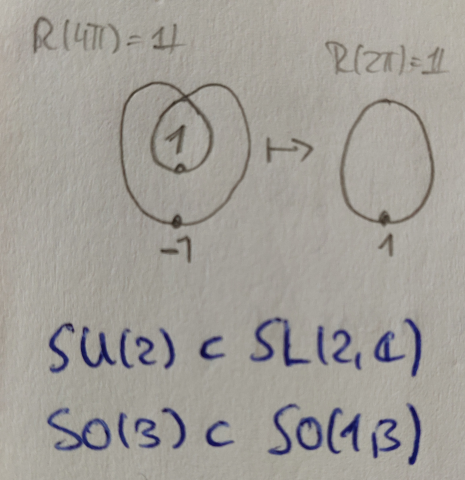 R(4π)=𝟙
R(2π)=𝟙
1
↦
-1
1
SU(2) ⊂ SL(2,ℂ)
SO(3) ⊂ SO(1,3)